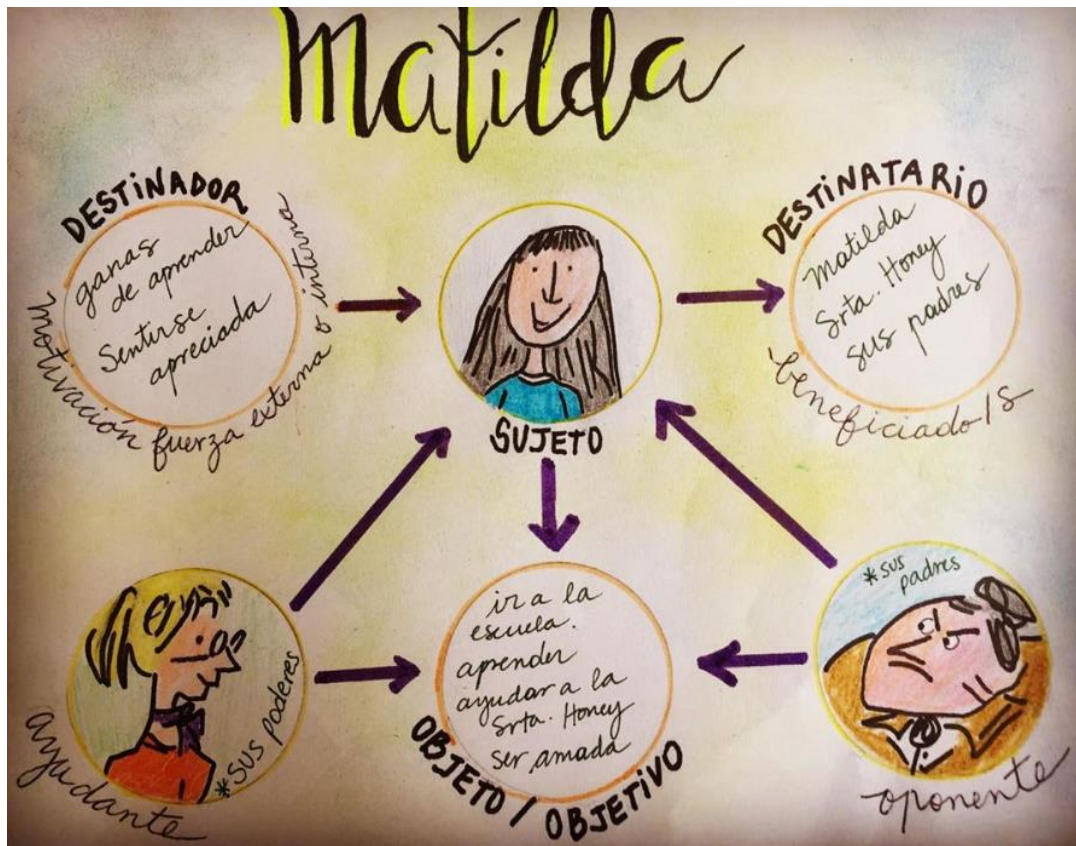 Matilda
DESTINADOR
ganas
de aprender
Sentirse
apreciada
motivación fuerza externa o interna
SUJETO
DESTINATARIO
Matilda
Srta. Honey
sus padres
beneficiado/s
ayudante
*sus poderes
ir a la
escuela.
aprender
ayudar a la
Srta. Honey
ser amada
OBJETO / OBJETIVO
*sus
padres
oponente